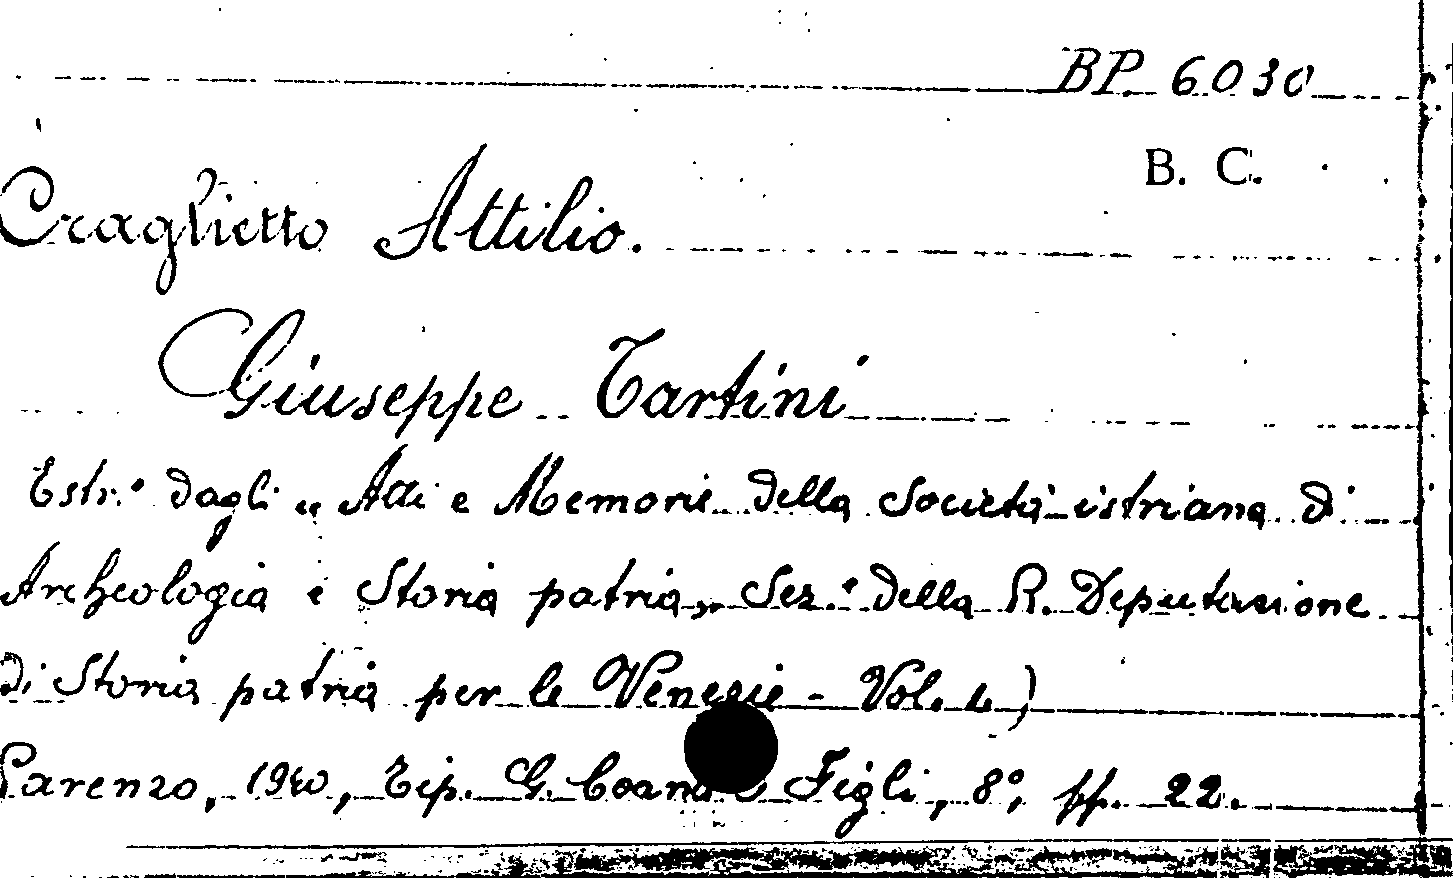 BP 6030
B. C.
Craglietto Attilio.
Giuseppe Tartini
Estr.º dagli „ Atti e Memorie della Società istriana di
Archeologia e Storia patria„ Sez.e della R. Deputazione
di Storia patria per le Venezie - Vol. L)
Parenzo, 1940, Tip. G. Coana e Figli, 8º, pp. 22.